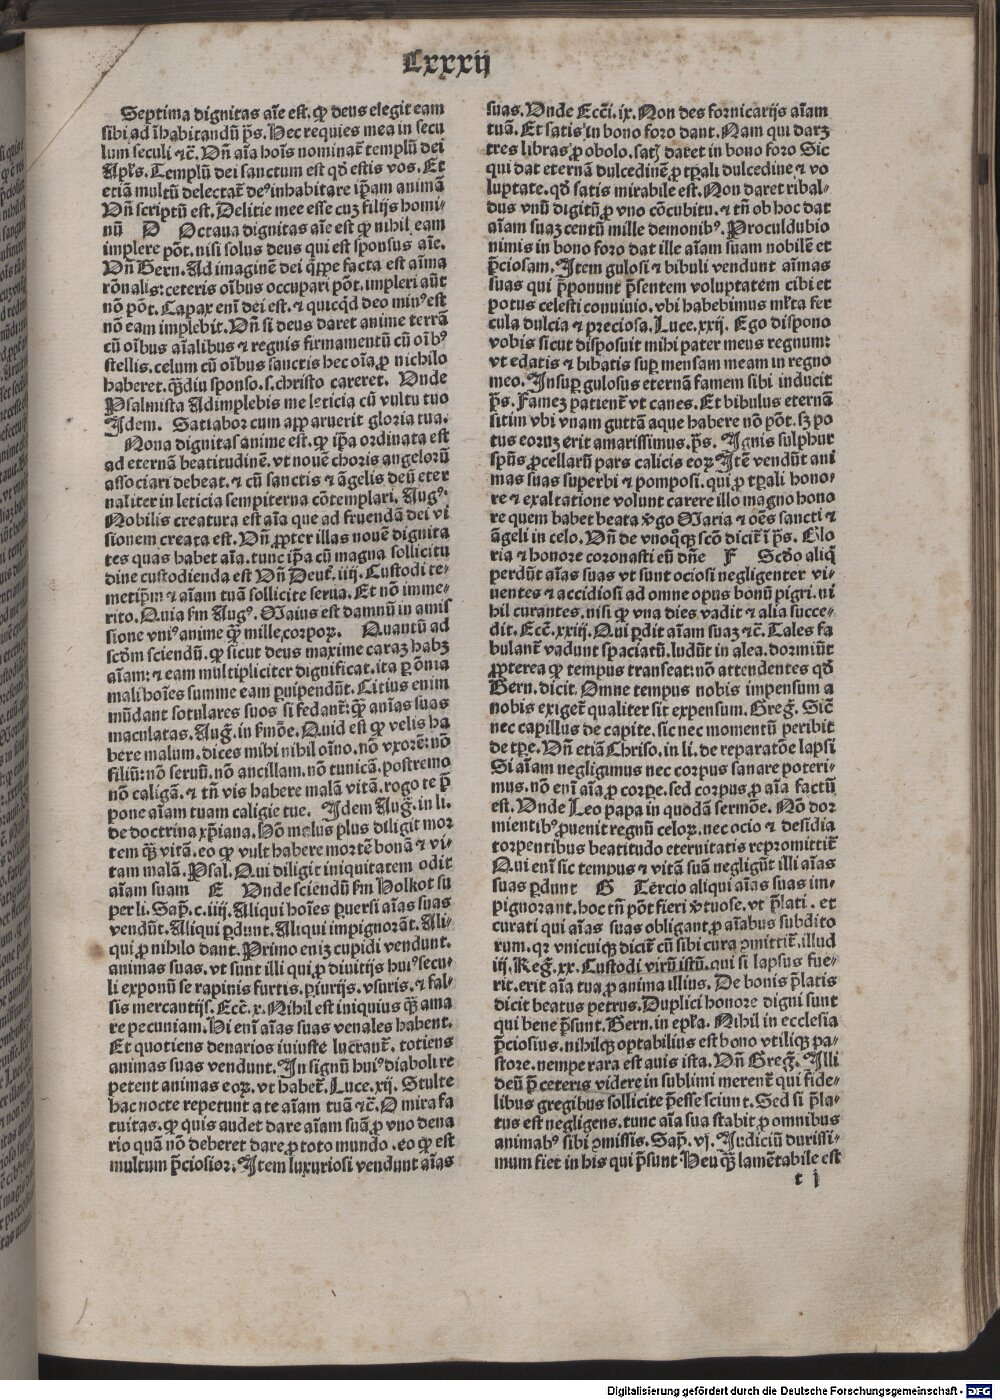 Lxxxij
Septima dignitas aīe est. qꝙ deus elegit eam
sibi ad īhabitandū p̄s. Hec requies mea in secu
lum seculi ⁊c̄. Vn̄ aīa hoīs nominat᷑ templū dei
Apl̄s. Templū dei sanctum est qd̄ estis vos. Et
etiā multū delectat᷑ deꝰ inhabitare ip̄am animā
Vn̄ scriptū est. Delitie mee esse cuꝫ filijs homi⸗
nū D Octaua dignitas aīe est ꝙ nihil eam
implere pōt. nisi solus deus qui est sponsus aīe.
Vn̄ Bern. Ad imaginē dei q̄ppe facta est aīma
rōnalis: ceteris oībus occupari pōt. impleri aūt
nō pōt. Capax enī dei est. ⁊ quicqd̄ deo minꝰ est
nō eam implebit. Vn̄ si deus daret anime terrā
cū oībus aīalibus ⁊ regnis firmamentū cū oībꝰ
stellis. celum cū oībus sanctis hec oīa ꝓ nichilo
haberet. qᷓ̄diu sponso .s. christo careret. Vnde
Psalmista Adimplebis me leticia cū vultu tuo
Idem. Satiabor cum apparuerit gloria tua.
Nona dignitas anime est. ꝙ ip̄a ordinata est
ad eternā beatitudinē. vt nouē choris angelorū
associari debeat. ⁊ cū sanctis ⁊ āgelis deū eter
naliter in leticia sempiterna cōtemplari. Augꝰ.
Nobilis creatura est aīa que ad fruendā dei vi
sionem creata est. Vn̄ ꝓpter illas nouē dignita
tes quas habet aīa. tunc ip̄a cū magna sollicitu
dine custodienda est Vn̄ Deut̄. iiij. Custodi te⸗
metip̄m ⁊ aīam tuā sollicite serua. Et nō imme⸗
rito. Quia ẜm Augꝰ. Maius est damnū in amis
sione vniꝰ anime qᷓ̄ mille corpoꝝ. Quantū ad
scd̄m sciendū. ꝙ sicut deus maxime caraꝫ habꝫ
aīam: ⁊ eam multipliciter dignificat. ita ꝑ ōnia
mali hoīes summe eam ꝑuipendūt. Citius enim
mūdant sotulares suos si fedant᷑: qᷓ̄ anīas suas
maculatas. Auḡ. in ẜmōe. Quid est ꝙ velis ha
bere malum. dices mihi nihil oīno. nō vxorē: nō
filiū: nō seruū. nō ancillam. nō tunicā. postremo
nō caligā. ⁊ tn̄ vis habere malā vitā. rogo te p̄
pone aīam tuam caligie tue. Idem Auḡ. in li.
de doctrina xp̄iana. Hō malus plus diligit mor
tem qᷓ̄ vitā. eo ꝙ vult habere mortē bonā ⁊ vi⸗
tam malā. Psal. Qui diligit iniquitatem odit
aīam suam E Vnde sciendū ẜm Holkot su
per li. Sap̄. c. iij. Aliqui hoīes ꝑuersi aīas suas
vendūt. Aliqui ꝑdunt. Aliqui impignorāt. Ali⸗
qui ꝓ nihilo dant. Primo enīꝫ cupidi vendunt.
animas suas. vt sunt illi qui ꝓ diuitijs huiꝰ secu⸗
li exponū se rapinis furtis. ꝑiurijs. vsuris. ⁊ fal⸗
sis mercantijs. Ecc̄. x. Nihil est iniquius qᷓ̄ ama
re pecuniam. Hi enī aīas suas venales habent.
Et quotiens denarios iniuste lucrant᷑. totiens
animas suas vendunt. In signū huiꝰ diaboli re
petent animas eoꝝ. vt habet᷑. Luce. xij. Stulte
hac nocte repetunt a te aīam tuā ⁊c̄. O mira fa
tuitas. ꝙ quis audet dare aīam suā ꝓ vno dena
rio quā nō deberet dare ꝓ toto mundo. eo ꝙ est
multum p̄ciosior. Item luxuriosi vendunt aīas
suas. Vnde Ecc̄i. ix. Non des fornicarijs aīam
tuā. Et satis in bono foro dant. Nam qui darꝫ
tres libras ꝓ obolo. satꝭ daret in bono foro Sic
qui dat eternā dulcedinē ꝓ tꝑali dulcedine ⁊ vo
luptate. qd̄ satis mirabile est. Non daret ribal⸗
dus vnū digitū ꝓ vno cōcubitu. ⁊ tn̄ ob hoc dat
aīam suaꝫ centū mille demonibꝰ. Proculdubio
nimis in bono foro dat ille aīam suam nobilē et
p̄ciosam. Item gulosi ⁊ bibuli vendunt aīmas
suas qui p̄ponunt p̄sentem voluptatem cibi et
potus celesti conuiuio. vbi habebimus ml̄ta fer
cula dulcia ⁊ preciosa. Luce. xxij. Ego dispono
vobis sicut disposuit mihi pater meus regnum:
vt edatis ⁊ bibatis suꝑ mensam meam in regno
meo. Insuꝑ gulosus eternā famem sibi inducit
p̄s. Fameꝫ patient᷑ vt canes. Et bibulus eternā
sitim vbi vnam guttā aque habere nō pōt. sꝫ po
tus eoruꝫ erit amarissimus. p̄s. Ignis sulphur
spūs ꝓcellarū pars calicis eoꝝ Itē vendūt ani
mas suas superbi ⁊ pomposi. qui ꝓ tꝑali hono⸗
re ⁊ exaltatione volunt carere illo magno hono
re quem habet beata v̄go Maria ⁊ oēs sancti ⁊
āgeli in celo. Vn̄ de vnoq̄qꝫ scō dicit᷑ ī p̄s. Glo
ria ⁊ honore coronasti eū dn̄e F Scd̄o aliq̄
perdūt aīas suas vt sunt ociosi negligenter vi⸗
uentes ⁊ accidiosi ad omne opus bonū pigri. ni
hil curantes. nisi ꝙ vna dies vadit ⁊ alia succe⸗
dit. Ecc̄. xxiij. Qui ꝑdit aīam suaꝫ ⁊c̄. Tales fa
bulant᷑ vadunt spaciatū. ludūt in alea. dormiūt
ꝓpterea ꝙ tempus transeat: nō attendentes qd̄
Bern. dicit. Omne tempus nobis impensum a
nobis exiget᷑ qualiter sit expensum. Greḡ. Sic̄
nec capillus de capite. sic nec momentū peribit
de tꝑe. Vn̄ etiā Chriso. in li. de reparatōe lapsi
Si aīam negligimus nec corpus sanare poteri⸗
mus. nō enī aīa ꝓ corꝑe. sed corpus ꝓ aīa factū
est. Vnde Leo papa in quodā sermōe. Nō dor
mientibꝰ ꝓuenit regnū celoꝝ. nec ocio ⁊ desidia
torpentibus beatitudo eternitatis repromittit᷑
Qui enī sic tempus ⁊ vitā suā negligūt illi aīas
suas ꝑdunt G Tercio aliqui aīas suas im⸗
pignorant. hoc tn̄ pōt fieri v̄tuose. vt p̄lati . et
curati qui aīas suas obligant ꝓ aīabus subdito
rum. qr vnicuiqꝫ dicit᷑ cū sibi cura ꝯmittit᷑. illud
iij. Reḡ. xx. Custodi virū istū. qui si lapsus fue⸗
rit. erit aīa tua ꝓ anima illius. De bonis p̄latis
dicit beatus petrus. Duplici honore digni sunt
qui bene p̄sunt. Bern. in epl̄a. Nihil in ecclesia
p̄ciosius. nihilqꝫ optabilius est bono vtiliqꝫ pa⸗
store. nempe rara est auis ista. Vn̄ Greḡ. Illi
deū p̄ ceteris videre in sublimi merent᷑ qui fide⸗
libus gregibus sollicite p̄esse sciunt. Sed si p̄la⸗
tus est negligens. tunc aīa sua stabit ꝓ omnibus
animabꝰ sibi ꝯmissis. Sap̄. vj. Iudiciū durissi⸗
mum fiet in his qui p̄sunt Heu qᷓ̄ lamētabile est
t j
Digitalisierung gefördert durch die Deutsche Forschungsgemeinschaft - DFG